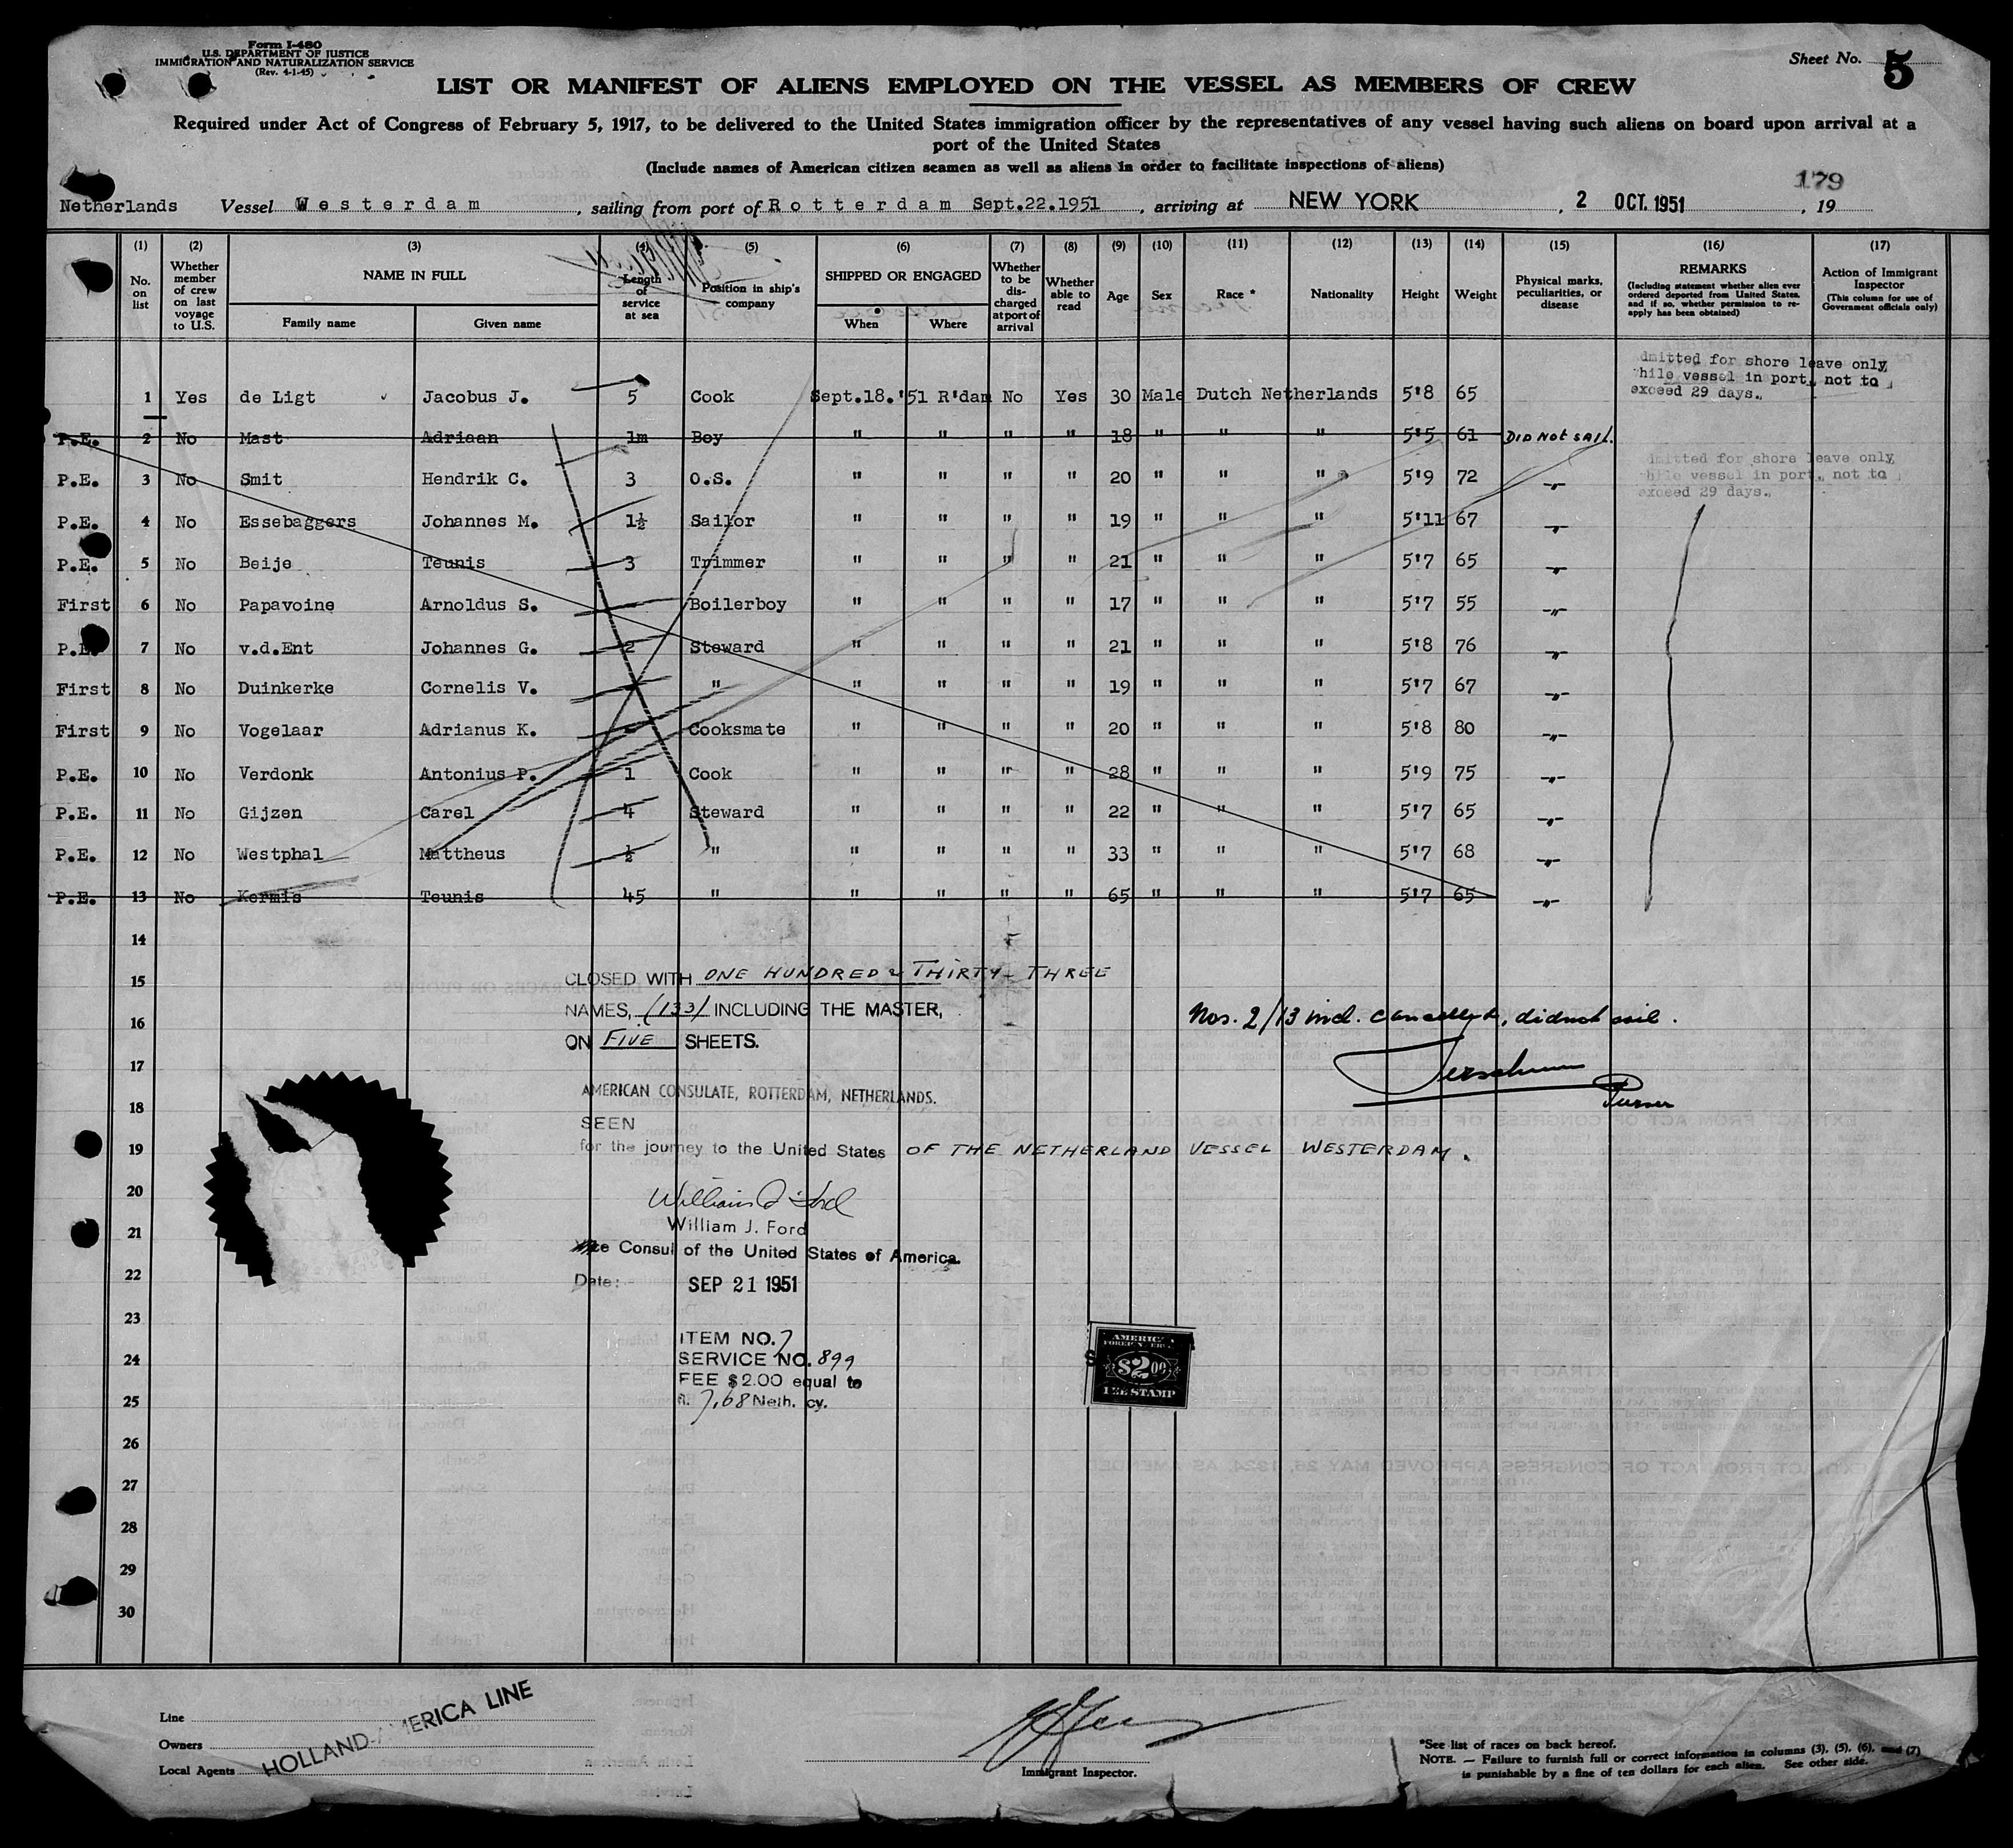 Form I-480
U.S. DEPARTMENT OF JUSTICE
IMMIGRATION AND NATURALIZATION SERVICE
(Rev. 4-1-45)
Sheet No. 5
LIST OR MANIFEST OF ALIENS EMPLOYED ON THE VESSEL AS MEMBERS OF CREW
Required under Act of Congress of February 5, 1917, to be delivered to the United States immigration officer by the representatives of any vessel having such aliens on board upon arrival at a
port of the United States
(Include names of American citizen seamen as well as aliens in order to facilitate inspections of aliens)
179
Netherlands Vessel Westerdam, sailing from port of Rotterdam Sept.22.1951, arriving at NEW YORK, 2 OCT. 1951, 19
(1) (2) (3) (4) (5) (6) (7) (8) (9) (10) (11) (12) (13) (14) (15) (16) (17)
No. on list
Whether member of crew on last voyage to U.S.
NAME IN FULL
Family name Given name
Length of service at sea
Position in ship's company
SHIPPED OR ENGAGED
When Where
Whether to be discharged at port of arrival
Whether able to read
Age Sex Race * Nationality Height Weight
Physical marks, peculiarities, or disease
REMARKS
(Including statement whether alien ever ordered deported from United States, and if so, whether permission to reapply has been obtained)
Action of Immigrant Inspector
(This column for use of Government officials only)
dmitted for shore leave only
hile vessel in port, not to
exceed 29 days.
1 Yes de Ligt Jacobus J. 5 Cook Sept.18.'51 R'dam No Yes 30 Male Dutch Netherlands 5'8 65
P.E. 2 No Mast Adriaan 1m Boy " " " " 18 " " " 5'5 61 DID NOT SAIL.
dmitted for shore leave only
hile vessel in port, not to
exceed 29 days.
P.E. 3 No Smit Hendrik C. 3 O.S. " " " " 20 " " " 5'9 72 -"-
P.E. 4 No Essebaggers Johannes M. 1½ Sailor " " " " 19 " " " 5'11 67 -"-
P.E. 5 No Beije Teunis 3 Trimmer " " " " 21 " " " 5'7 65 -"-
First 6 No Papavoine Arnoldus S. - Boilerboy " " " " 17 " " " 5'7 55 -"-
P.E. 7 No v.d.Ent Johannes G. 2 Steward " " " " 21 " " " 5'8 76 -"-
First 8 No Duinkerke Cornelis V. - " " " " " 19 " " " 5'7 67 -"-
First 9 No Vogelaar Adrianus K. - Cooksmate " " " " 20 " " " 5'8 80 -"-
P.E. 10 No Verdonk Antonius P. 1 Cook " " " " 28 " " " 5'9 75 -"-
P.E. 11 No Gijzen Carel 4 Steward " " " " 22 " " " 5'7 65 -"-
P.E. 12 No Westphal Mattheus ½ " " " " " 33 " " " 5'7 68 -"-
P.E. 13 No Kermis Teunis 45 " " " " " 65 " " " 5'7 65 -"-
14
15 CLOSED WITH ONE HUNDRED & THIRTY-THREE
NAMES, (133) INCLUDING THE MASTER,
16 Nos. 2/13 incl. cancelled, did not sail.
ON FIVE SHEETS.
17
Purser
AMERICAN CONSULATE, ROTTERDAM, NETHERLANDS.
18
SEEN
19 for the journey to the United States OF THE NETHERLAND VESSEL WESTERDAM.
20
William J. Ford
William J. Ford
21
Vice Consul of the United States of America.
22
Date: SEP 21 1951
23
ITEM NO. 7
24 SERVICE NO. 899
FEE $2.00 equal to
25 fl. 7,68 Neth. cy.
AMERICAN
FOREIGN SERVICE
$2.00
FEE STAMP
26
27
28
29
30
Line
Owners
Local Agents
HOLLAND-AMERICA LINE
Immigrant Inspector.
*See list of races on back hereof.
NOTE. — Failure to furnish full or correct information in columns (3), (5), (6), and (7)
is punishable by a fine of ten dollars for each alien. See other side.